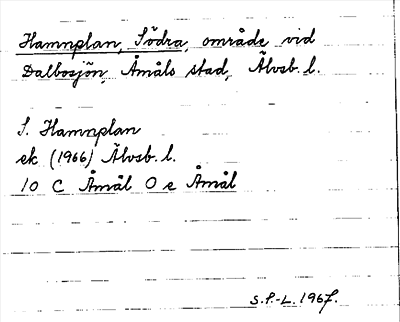 Hamnplan, Södra, område vid
Dalbosjön, Åmåls stad, Älvsb. l.
S. Hamnplan
ek (1966) Älvsb. l.
10 C Åmål O e Åmål
S.P.-L. 1967.